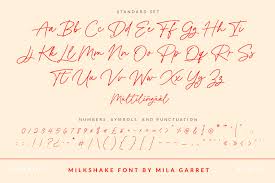 STANDARD SET
Aa Bb Cc Dd Ee Ff Gg Hh Ii Jj
Kk Ll Mm Nn Oo Pp Qq Rr Ss Tt
Uu Vv Ww Xx Yy Zz
Multilingual
NUMBERS, SYMBOLS, AND PUNCTUATION
0123456789
MILKSHAKE FONT BY MILA GARRET